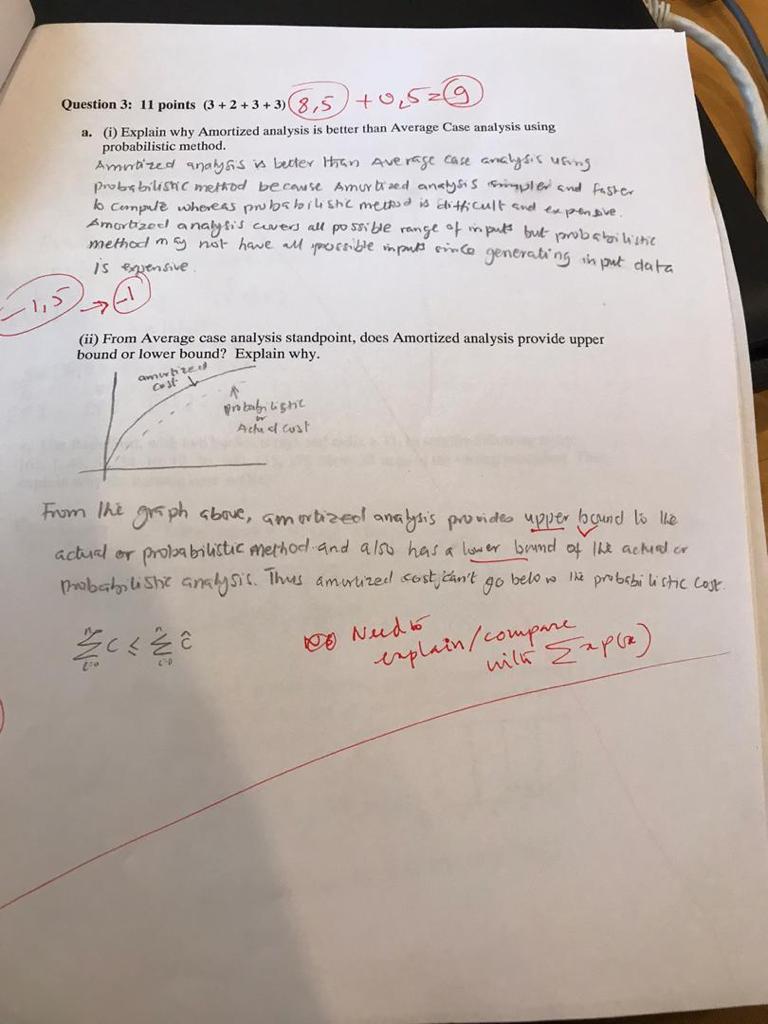 Question 3: 11 points (3 + 2 + 3 + 3) 8,5 + 0,5 = 9
a. (i) Explain why Amortized analysis is better than Average Case analysis using
probabilistic method.
Amortized analysis is better than average case analysis using
probabilistic method because Amortized analysis simpler and faster
to compute whereas probabilistic method is difficult and expensive.
Amortized analysis covers all possible range of inputs but probabilistic
method may not have all possible inputs since generating input data
is expensive.
-1,5 → -1
(ii) From Average case analysis standpoint, does Amortized analysis provide upper
bound or lower bound? Explain why.
amortized
cost
probabilistic
or
Actual cost
From the graph above, amortized analysis provides upper bound to the
actual or probabilistic method and also has a lower bound of the actual or
probabilistic analysis. Thus amortized cost can't go below the probabilistic cost.
Σ C ≤ Σ ĉ
Need to
explain/compare
with Σ x p(x)